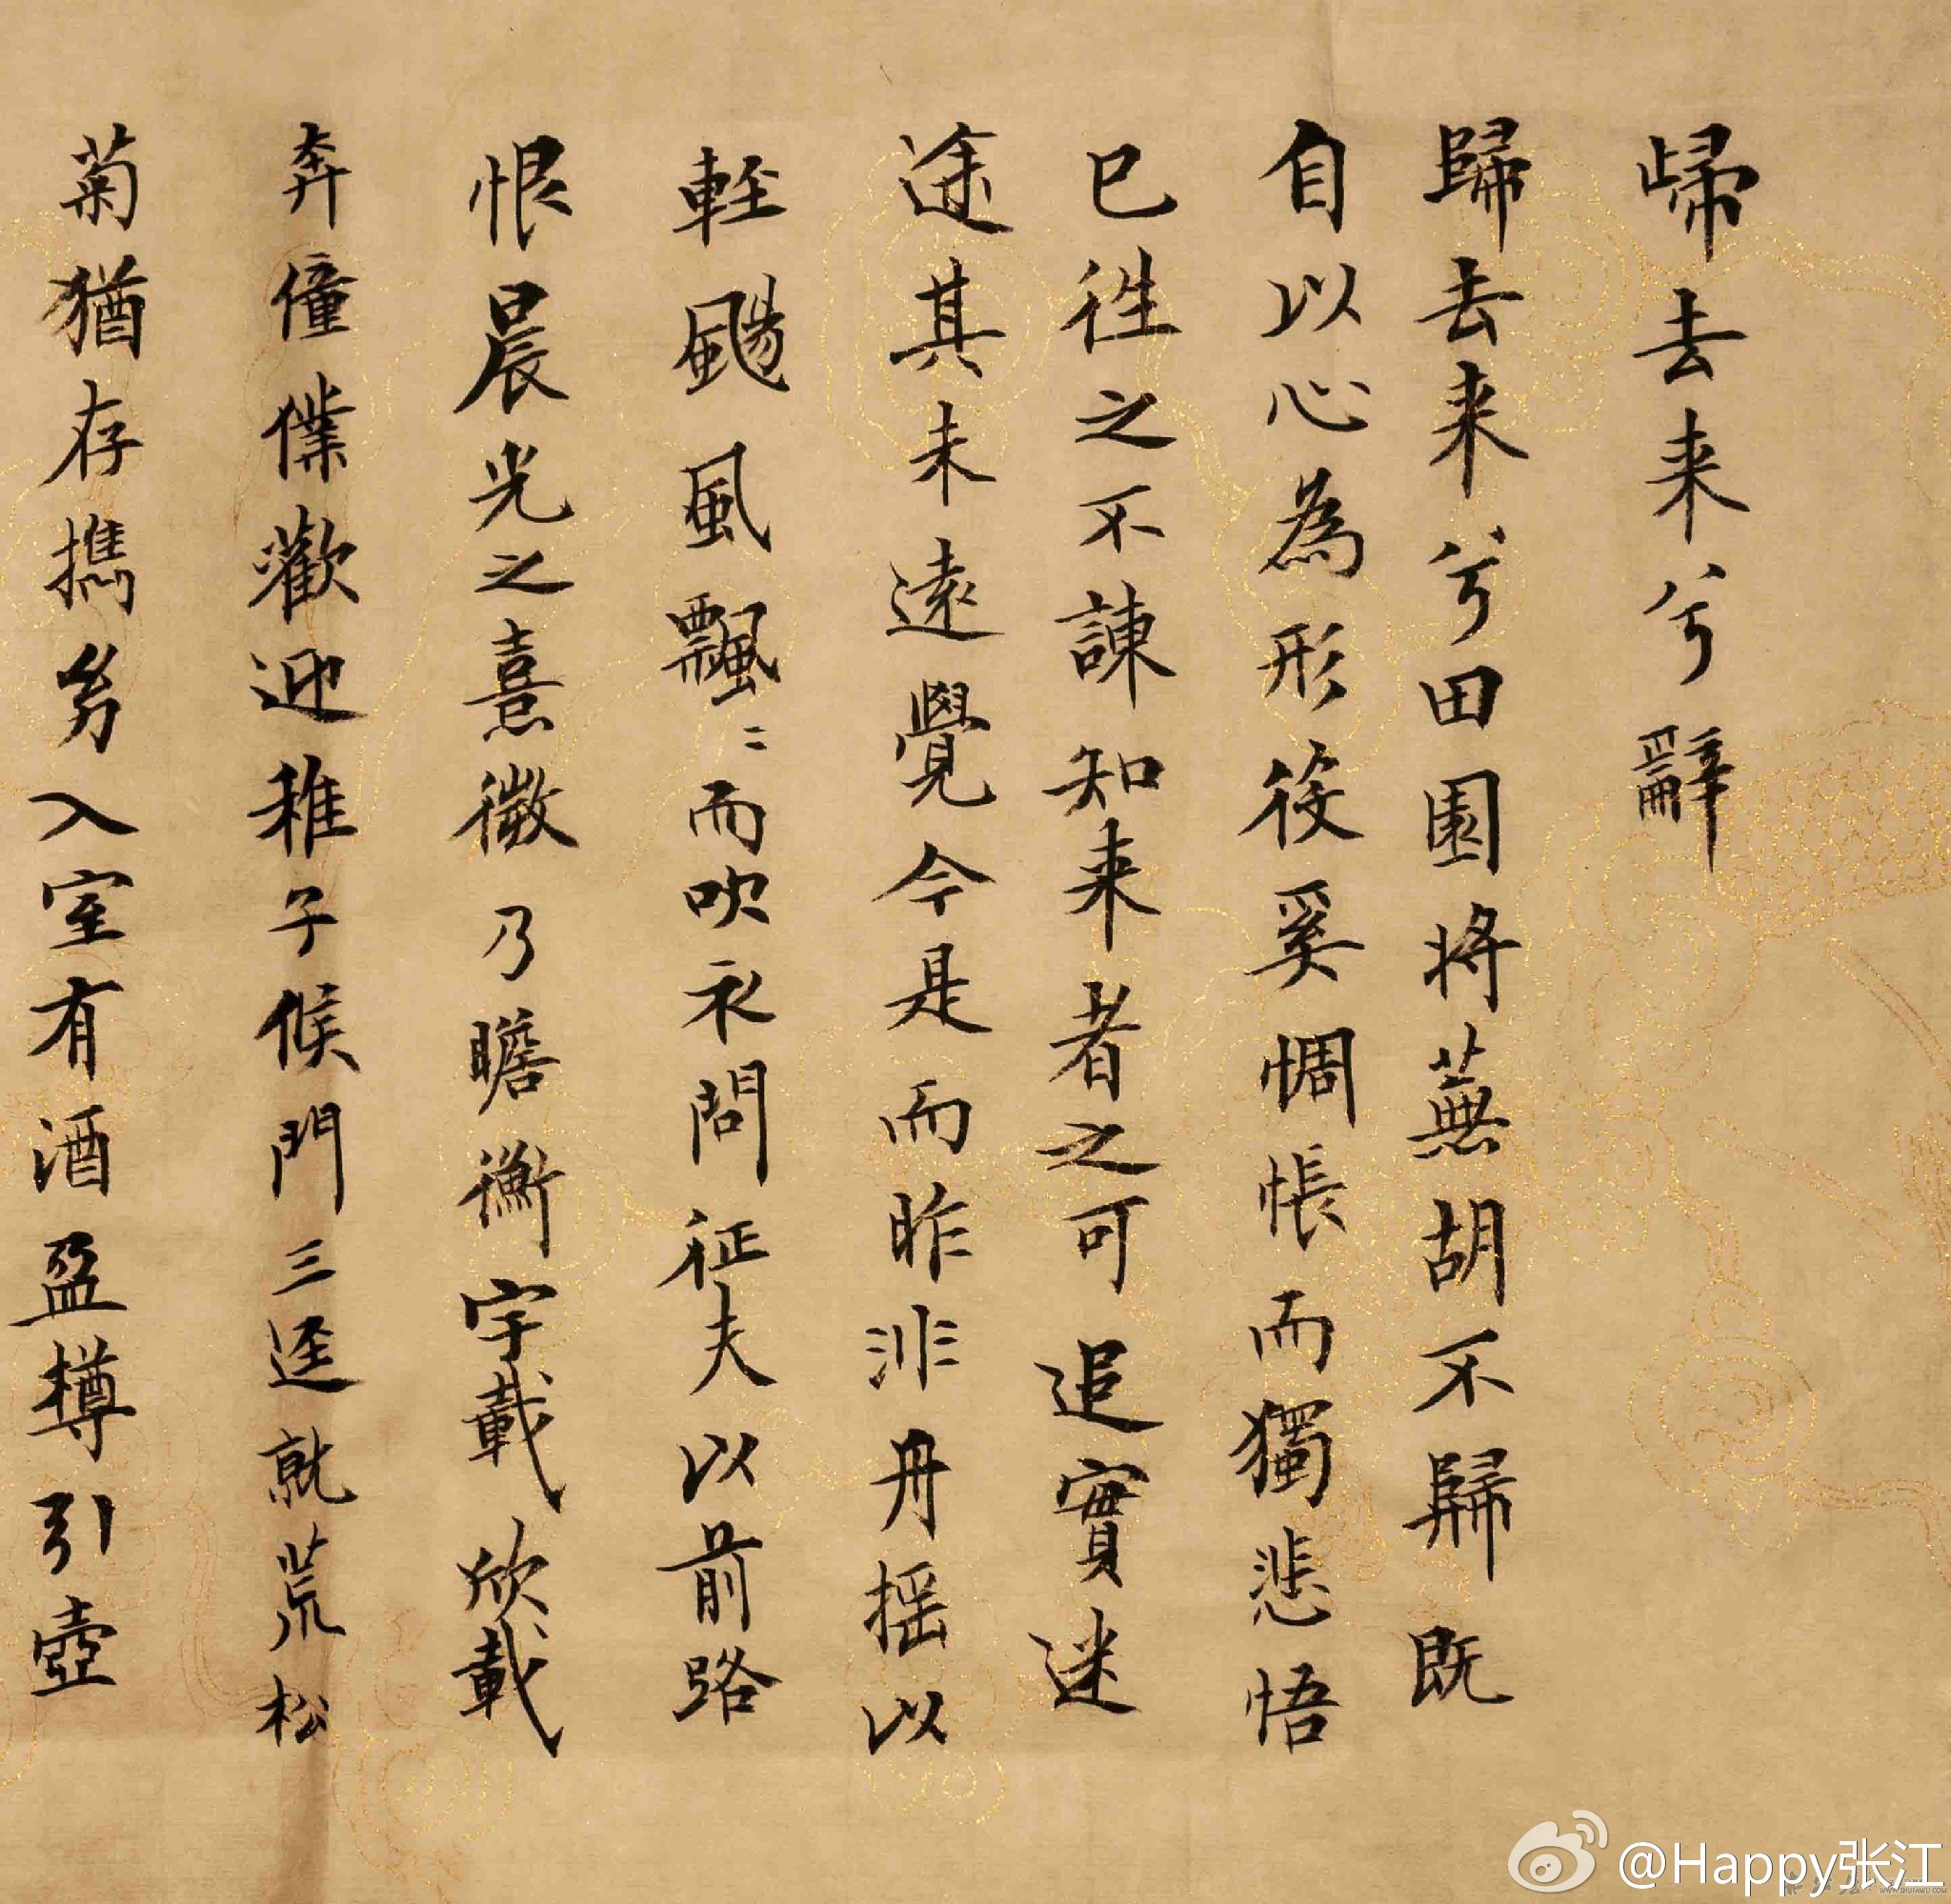 歸去来兮辭
歸去来兮田園将蕪胡不歸既
自以心為形役奚惆悵而獨悲悟
已往之不諫知来者之可追實迷
途其未遠覺今是而昨非舟摇以
輕颺風飄〻而吹衣問征夫以前路
恨晨光之熹微乃瞻衡宇載欣載
奔僮僕歡迎稚子候門三逕就荒松
菊猶存攜幼入室有酒盈樽引壺
@Happy张江